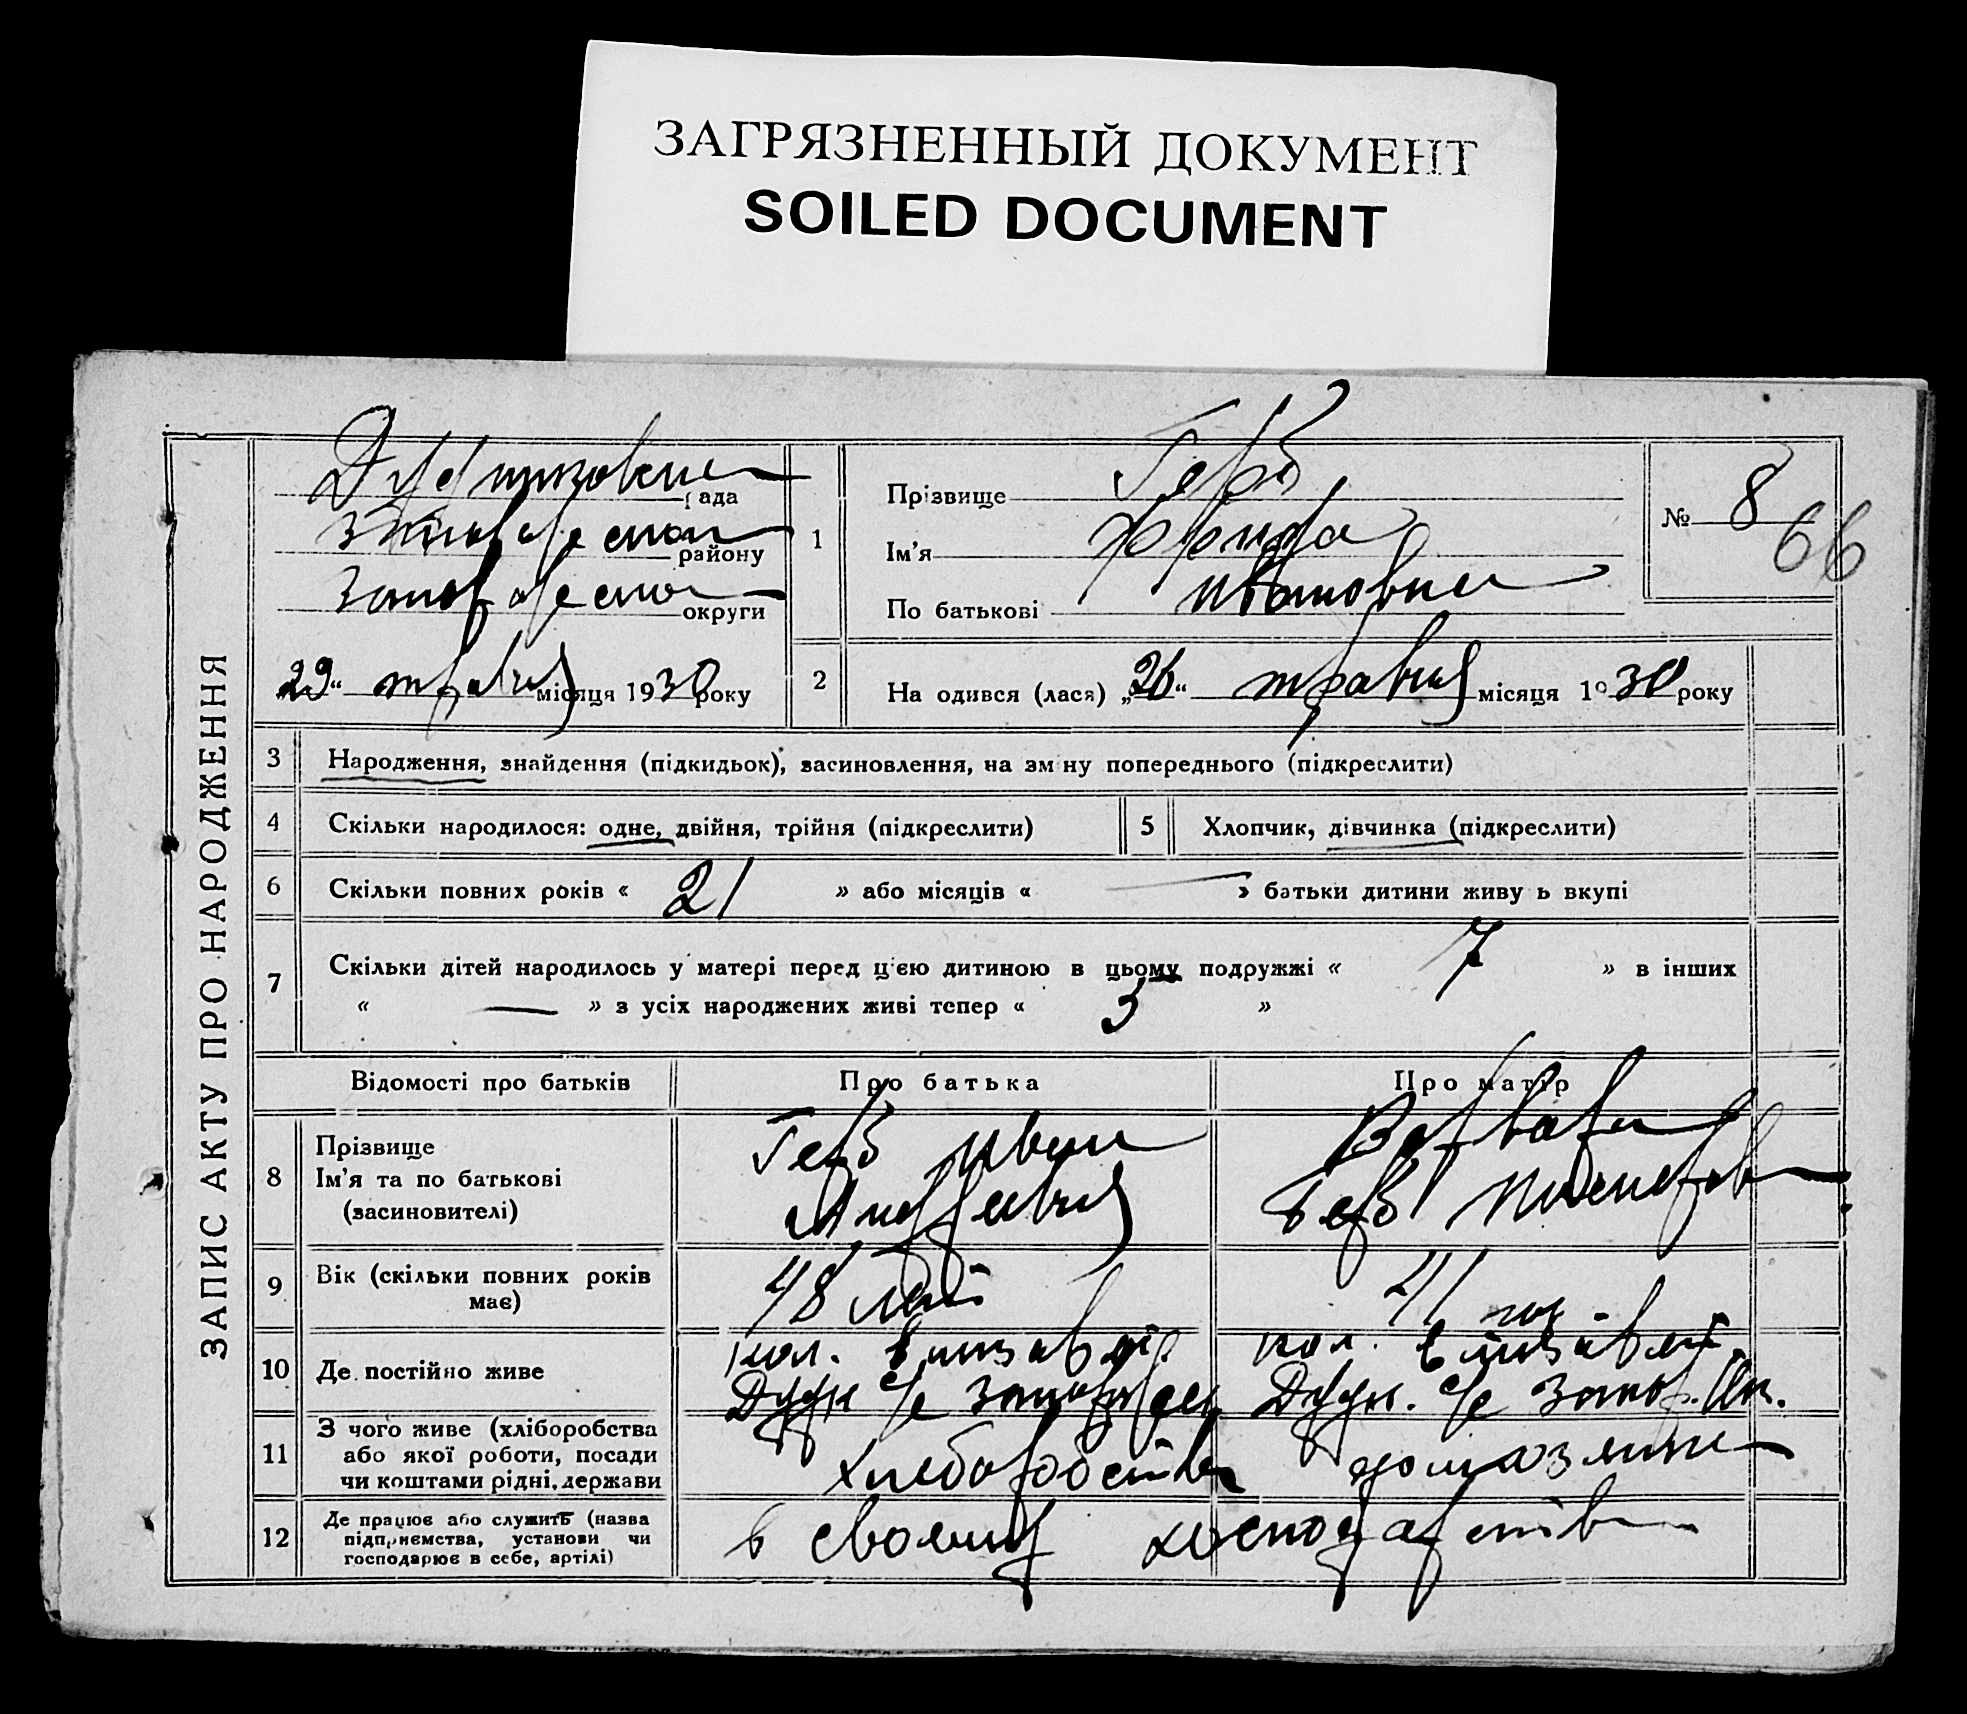 ЗАГРЯЗНЕННЫЙ ДОКУМЕНТ
SOILED DOCUMENT
ЗАПИС АКТУ ПРО НАРОДЖЕННЯ
рада
району
округи
"29" травня місяця 1930 року
1
Прізвище Герб
Ім'я Фрида
По батькові Ивановна
№ 8
66
2
На одився (лася) „26“ травня місяця 1930 року
3 Народження, знайдення (підкидьок), засиновлення, на зміну попереднього (підкреслити)
4 Скільки народилося: одне, двійня, трійня (підкреслити)
5 Хлопчик, дівчинка (підкреслити)
6 Скільки повних років « 21 » або місяців « — » батьки дитини живу ь вкупі
7 Скільки дітей народилось у матері перед цією дитиною в цьому подружжі « 7 » в інших
« — » з усіх народжених живі тепер « »
Відомості про батьків
Про батька
Про матір
8 Прізвище
Ім'я та по батькові
(засиновителі)
Герб Иван
Андреевич
Варвара
Герб
9 Вік (скільки повних років
має)
48 лет
41
10 Де постійно живе
кол.
Дудн. с/с
кол.
Дудн. с/с Запор.
11 З чого живе (хліборобства
або якої роботи, посади
чи коштами рідні, держави
хлеборобства
12 Де працює або служить (назва
підприємства, установи чи
господарює в себе, артілі)
в своему